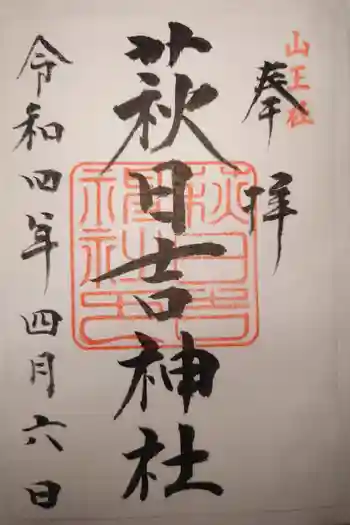 山王社
奉拝
萩日吉神社
萩日吉神社印
令和四年四月六日